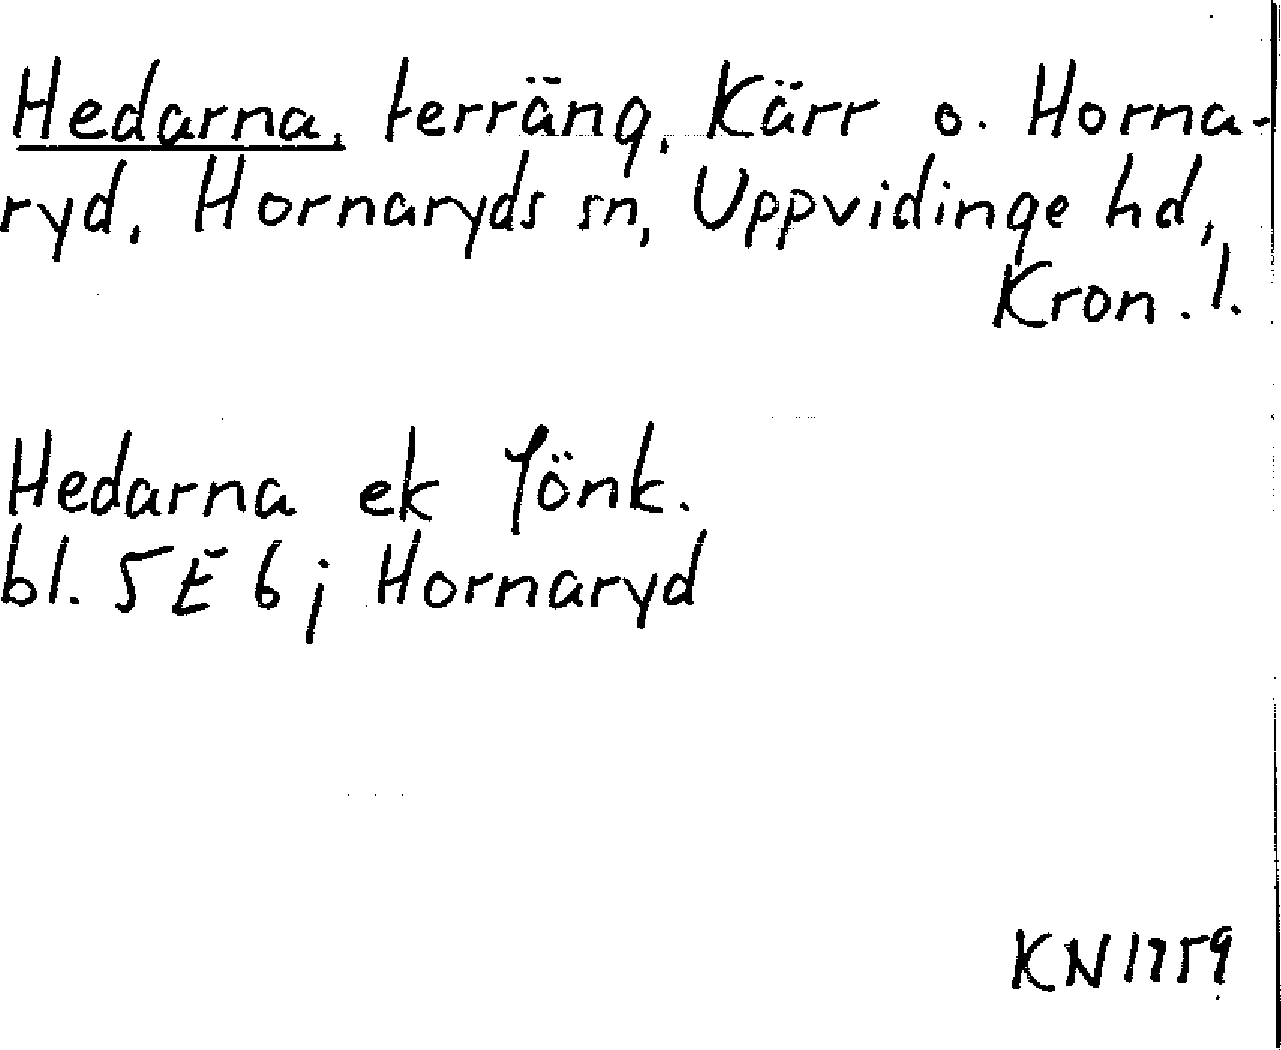 Hedarna, terräng, Kärr o. Horna-
ryd, Hornaryds sn, Uppvidinge hd,
Kron. l.
Hedarna ek Jönk.
bl. 5E 6j Hornaryd
KN 1759